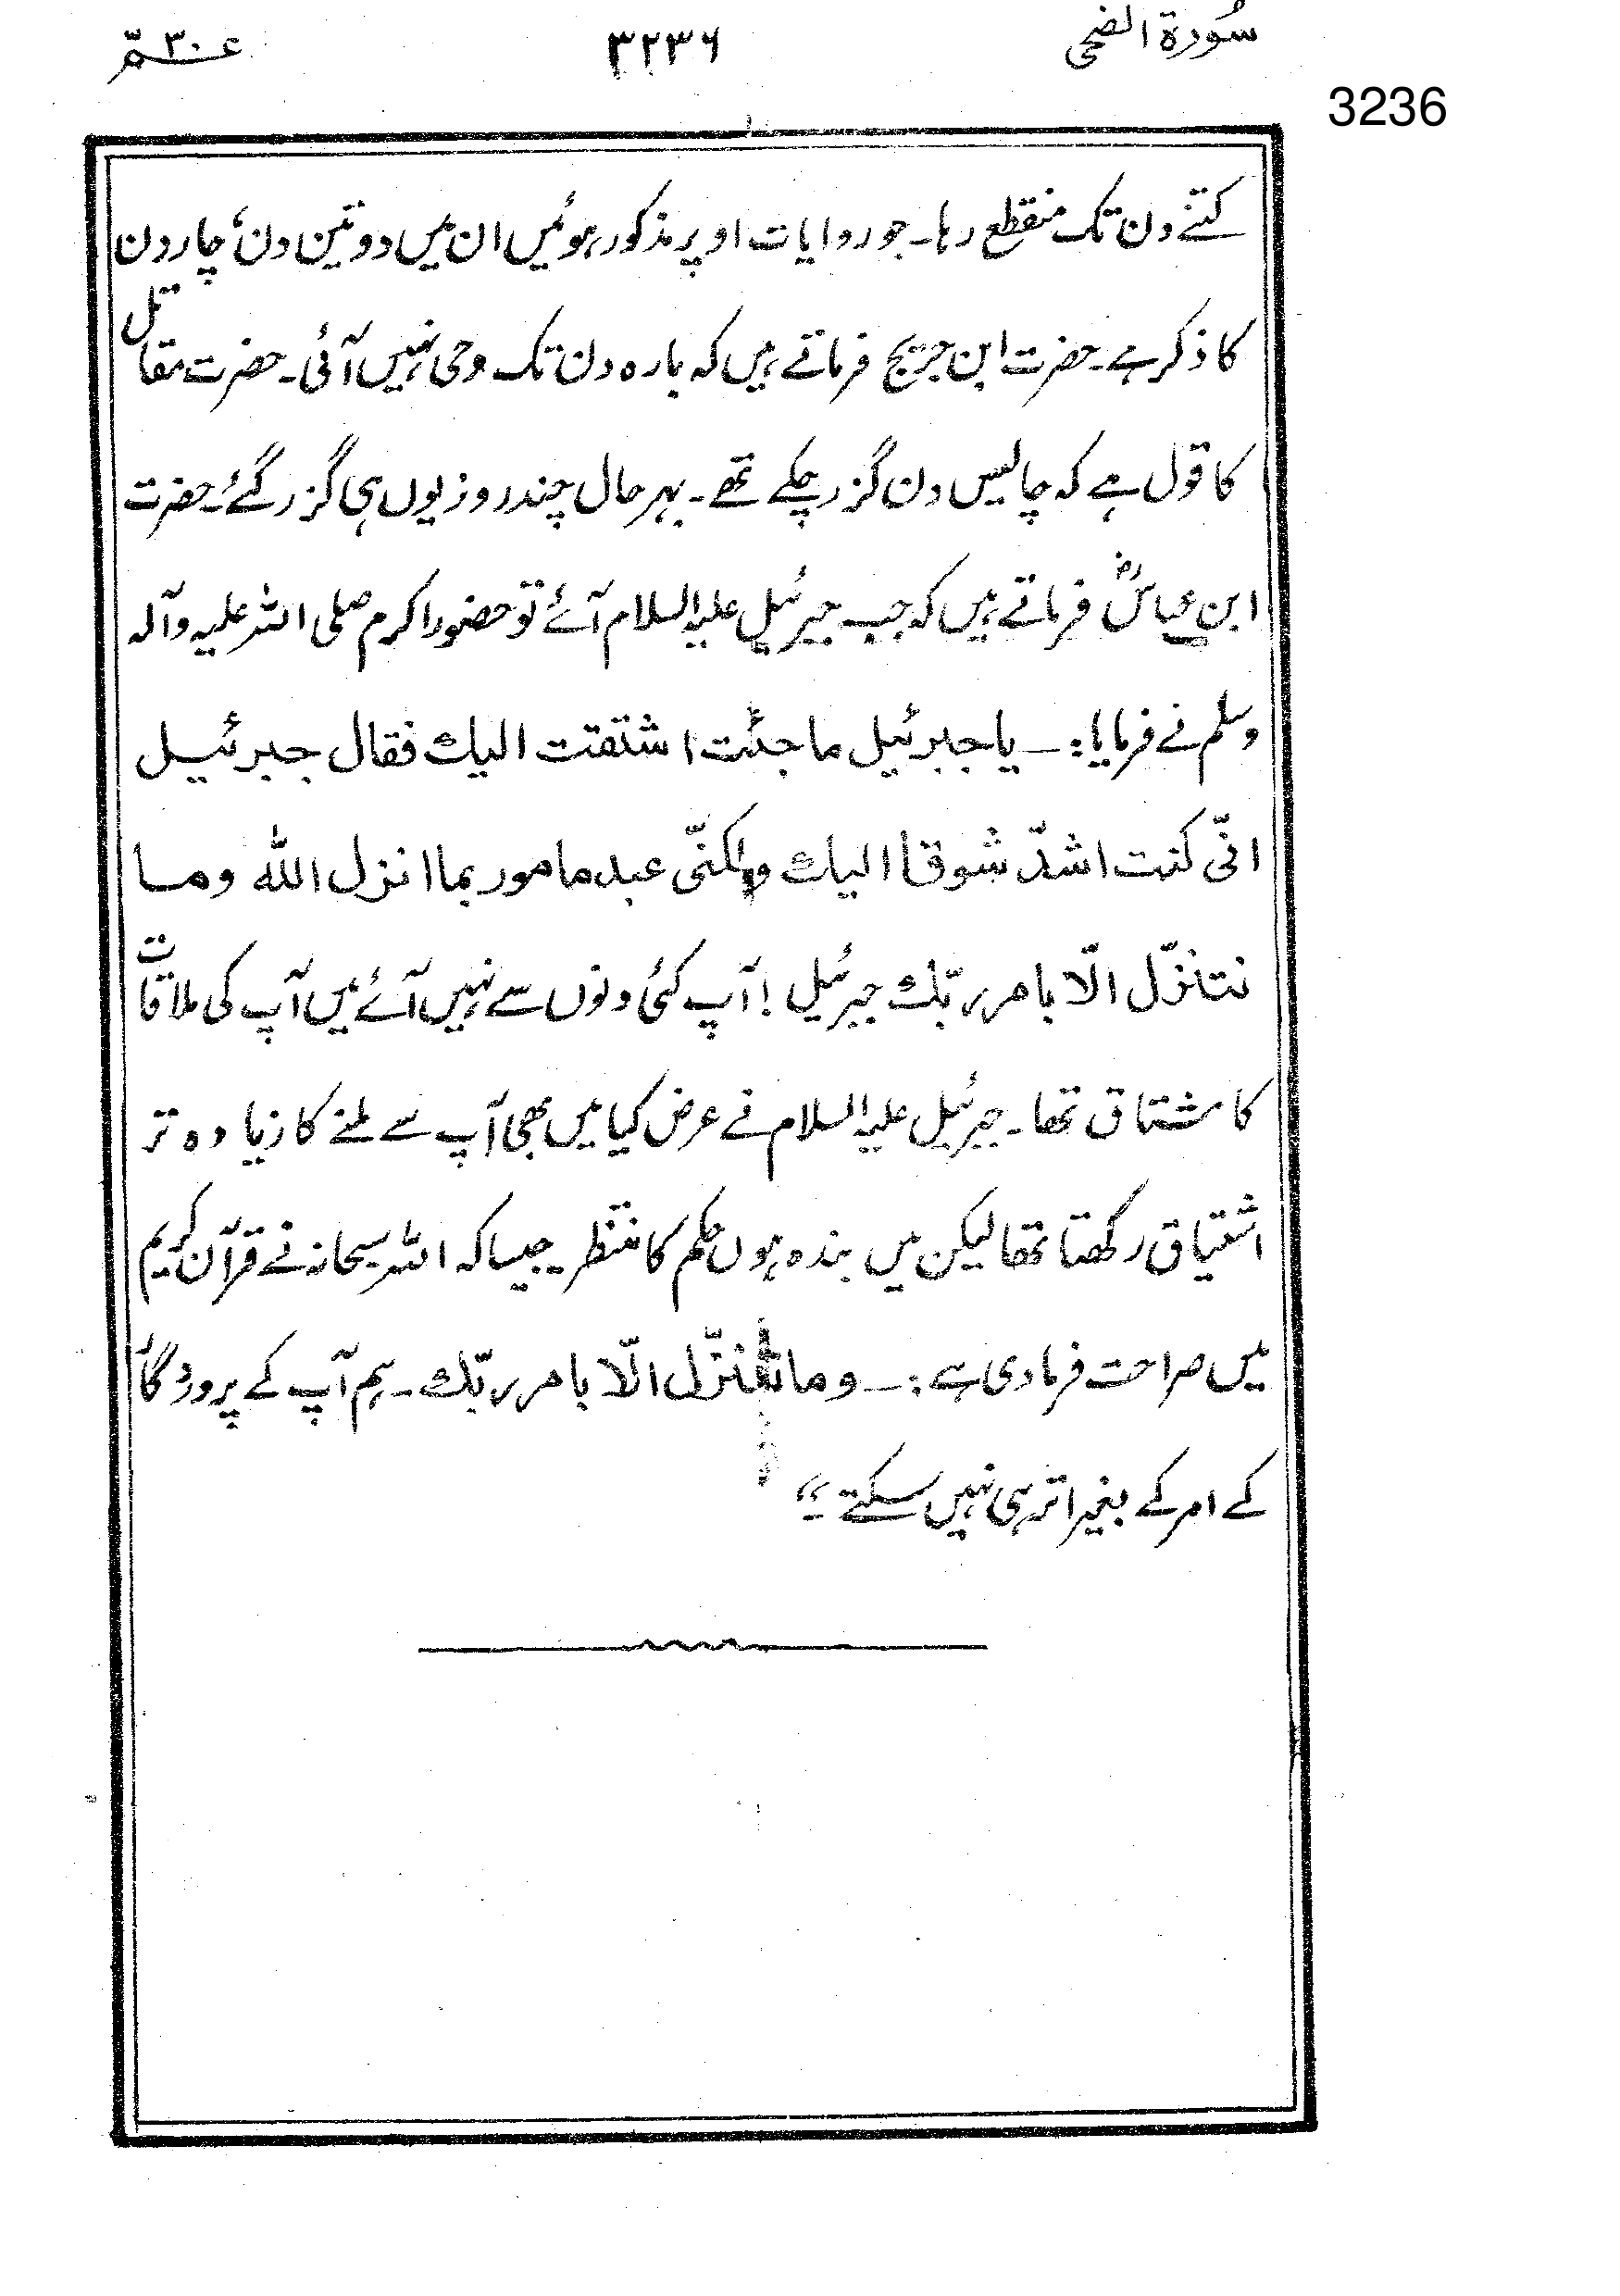 سُورة الضحى
۳۲۳۶
عـــمّ ۳۰
3236
کتنے دن تک منقطع رہا۔ جو روایات اوپر مذکور ہوئیں ان میں دو تین دن، چار دن
کا ذکر ہے۔ حضرت ابن جریج فرماتے ہیں کہ بارہ دن تک وحی نہیں آئی۔ حضرت مقاتل
کا قول ہے کہ چالیس دن گزر چکے تھے۔ بہرحال چند روز یوں ہی گزر گئے۔ حضرت
ابن عباسؓ فرماتے ہیں کہ جب جبرئیل علیہ السلام آئے تو حضور اکرم صلی اللہ علیہ وآلہ
وسلم نے فرمایا:۔ یا جبرئیل ما جئت اشتقت الیك فقال جبرئیل
انّی کنت اشدّ شوقا الیك ولکنّی عبد مامور بما انزل اللہ وما
نتنزّل الّا بامر ربّك جبرئیل! آپ کئی دنوں سے نہیں آئے میں آپ کی ملاقات
کا مشتاق تھا۔ جبرئیل علیہ السلام نے عرض کیا میں بھی آپ سے ملنے کا زیادہ تر
اشتیاق رکھتا تھا لیکن میں بندہ ہوں حکم کا منتظر جیسا کہ اللہ سبحانہ نے قرآن کریم
میں صراحت فرما دی ہے:۔ وما نتنزّل الّا بامر ربّك۔ ہم آپ کے پروردگار
کے امر کے بغیر اتر ہی نہیں سکتے۔"